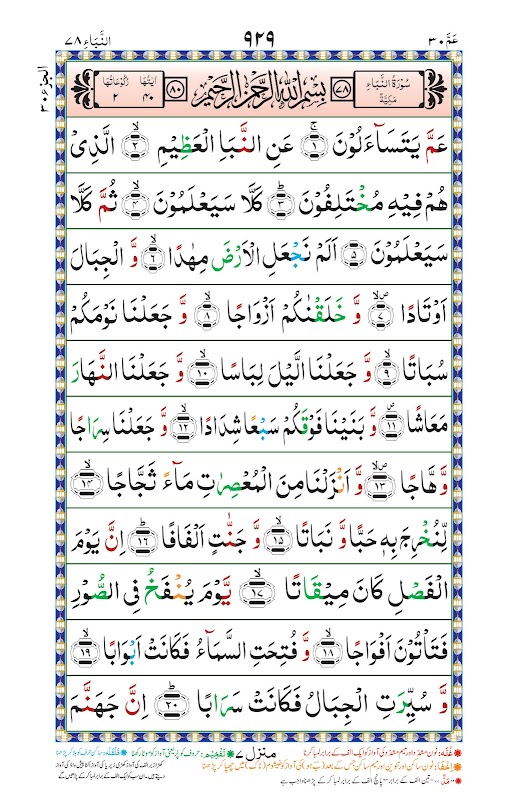 عَمَّ ٣٠
٩٢٩
النَّبَاِ ٧٨
الجزء ٣٠
سُوْرَةُ النَّبَاِ مَكِّيَّةٌ ٧٨ بِسْمِ اللّٰهِ الرَّحْمٰنِ الرَّحِيْمِ ٨٠ اٰيٰتُهَا ٤٠ رُكُوْعَاتُهَا ٢
عَمَّ يَتَسَآءَلُوْنَ ۚ ١ عَنِ النَّبَاِ الْعَظِيْمِ ۙ ٢ الَّذِىْ
هُمْ فِيْهِ مُخْتَلِفُوْنَ ؕ ٣ كَلَّا سَيَعْلَمُوْنَ ۙ ٤ ثُمَّ كَلَّا
سَيَعْلَمُوْنَ ٥ اَلَمْ نَجْعَلِ الْاَرْضَ مِهٰدًا ۙ ٦ وَّ الْجِبَالَ
اَوْتَادًا ۪ۙ ٧ وَّ خَلَقْنٰكُمْ اَزْوَاجًا ۙ ٨ وَّ جَعَلْنَا نَوْمَكُمْ
سُبَاتًا ۙ ٩ وَّ جَعَلْنَا الَّيْلَ لِبَاسًا ۙ ١٠ وَّ جَعَلْنَا النَّهَارَ
مَعَاشًا ۪ ١١ وَّ بَنَيْنَا فَوْقَكُمْ سَبْعًا شِدَادًا ۙ ١٢ وَّ جَعَلْنَا سِرَاجًا
وَّهَّاجًا ۪ۙ ١٣ وَّ اَنْزَلْنَا مِنَ الْمُعْصِرٰتِ مَآءً ثَجَّاجًا ۙ ١٤
لِّنُخْرِجَ بِهٖ حَبًّا وَّ نَبَاتًا ۙ ١٥ وَّ جَنّٰتٍ اَلْفَافًا ؕ ١٦ اِنَّ يَوْمَ
الْفَصْلِ كَانَ مِيْقَاتًا ۙ ١٧ يَّوْمَ يُنْفَخُ فِى الصُّوْرِ
فَتَاْتُوْنَ اَفْوَاجًا ۙ ١٨ وَّ فُتِحَتِ السَّمَآءُ فَكَانَتْ اَبْوَابًا ۙ ١٩
وَّ سُيِّرَتِ الْجِبَالُ فَكَانَتْ سَرَابًا ؕ ٢٠ اِنَّ جَهَنَّمَ
منزل ٧